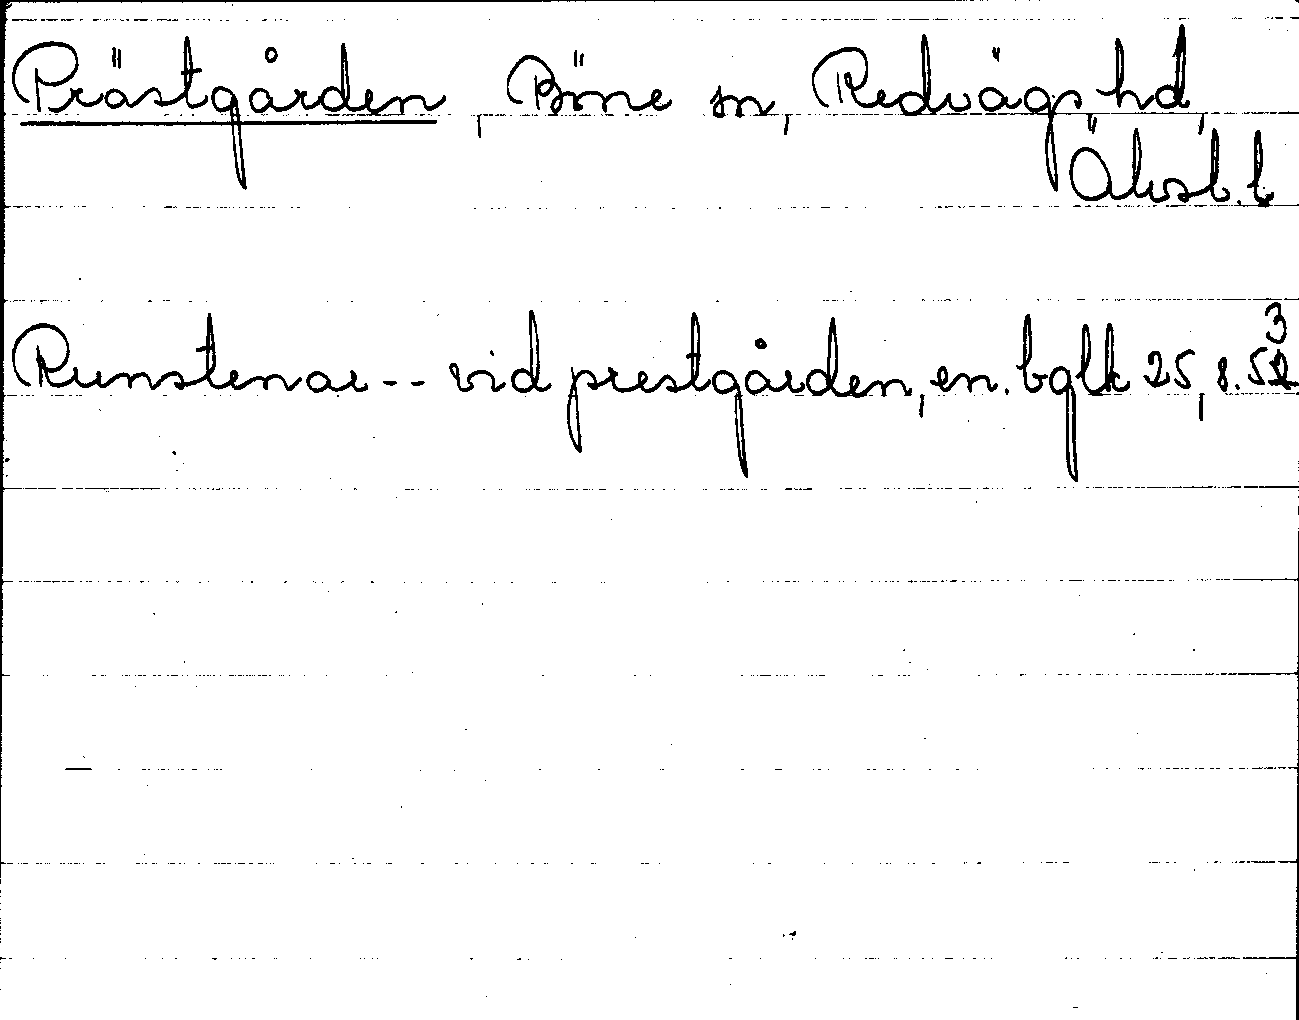 Prästgården, Böne sn, Redvägs hd,
Älvsb. l
Runstenar -- vid prestgården, en. bglk 25, s. 53